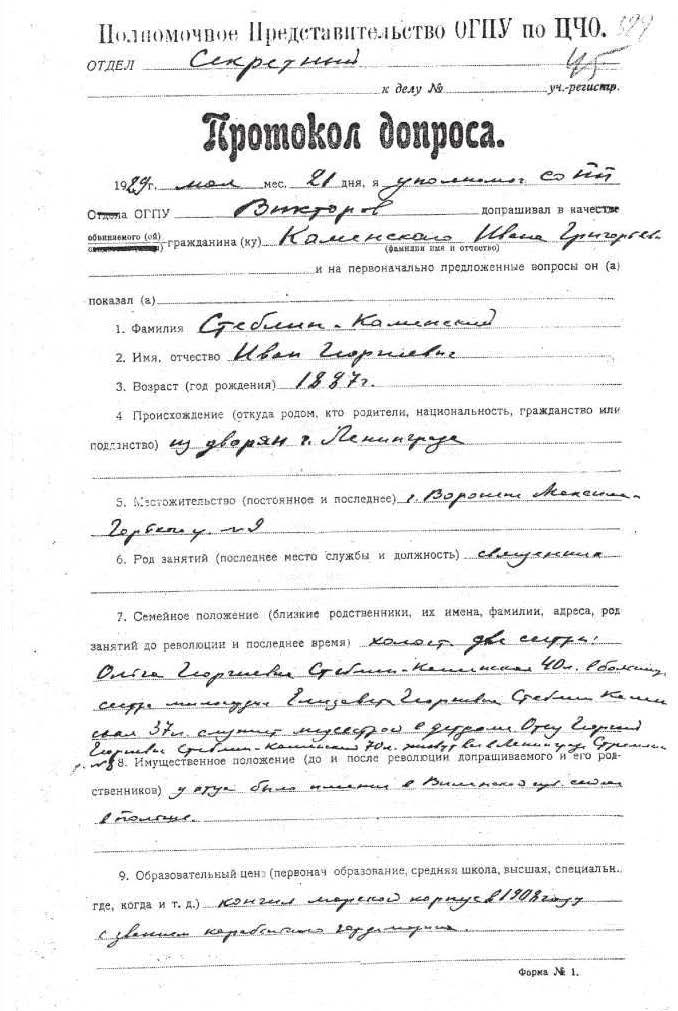 Полномочное Представительство ОГПУ по ЦЧО.
ОТДЕЛ Секретный
к делу № уч.-регистр.
Протокол допроса.
1929г. мая мес. 21 дня, я уполномоч СО ПП
Отдела ОГПУ Викторов допрашивал в качестве
обвиняемого (ой)
гражданина (ку) Каменского Ивана Григорьев
(фамилия имя и отчество)
и на первоначально предложенные вопросы он (а)
показал (а)
1. Фамилия Стеблин-Каменский
2. Имя, отчество Иван Георгиевич
3. Возраст (год рождения) 1887г.
4 Происхождение (откуда родом, кто родители, национальность, гражданство или
подданство) из дворян г. Ленинграда
5. Местожительство (постоянное и последнее) г. Воронеж Максима
Горького у. №9
6. Род занятий (последнее место службы и должность) священник
7. Семейное положение (близкие родственники, их имена, фамилии, адреса, род
занятий до революции и последнее время) холост две сестры:
Ольга Георгиевна Стеблин-Каменская 40л. в больниц
сестра милосердия Елизавета Георгиевна Стеблин Камен
ская 37л. служит медсестрой в Отец Георгий
Георгиевич Стеблин-Каменский 70л. живут все в Ленинграде Стремян
№8
8. Имущественное положение (до и после революции допрашиваемого и его род-
ственников) у отца было имение в Виленской губ.
в Польше.
9. Образовательный ценз (первонач образование, средняя школа, высшая, специальн.,
где, когда и т. д.) кончил морской корпус в 1908 году
с званием корабельного гардемарина.
Форма № 1.